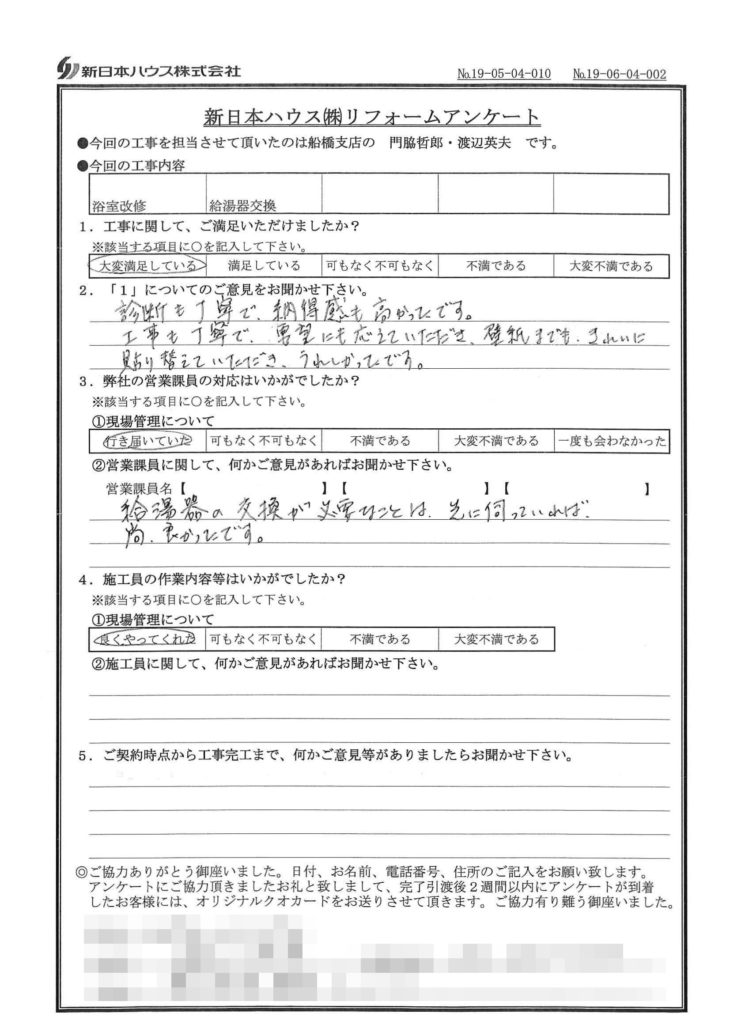 新日本ハウス株式会社 No.19-05-04-010 No.19-06-04-002
新日本ハウス㈱リフォームアンケート
●今回の工事を担当させて頂いたのは船橋支店の 門脇哲郎・渡辺英夫 です。
●今回の工事内容
浴室改修 給湯器交換
1．工事に関して、ご満足いただけましたか？
※該当する項目に○を記入して下さい。
大変満足している 満足している 可もなく不可もなく 不満である 大変不満である
2．「1」についてのご意見をお聞かせ下さい。
診断も丁寧で、納得感も高かったです。
工事も丁寧で、要望にも応えていただき、壁紙までも、きれいに
貼り替えていただき、うれしかったです。
3．弊社の営業課員の対応はいかがでしたか？
※該当する項目に○を記入して下さい。
①現場管理について
行き届いていた 可もなく不可もなく 不満である 大変不満である 一度も会わなかった
②営業課員に関して、何かご意見があればお聞かせ下さい。
営業課員名【 】【 】【 】
給湯器の交換が必要なことは、先に伺っていれば、
尚、良かったです。
4．施工員の作業内容等はいかがでしたか？
※該当する項目に○を記入して下さい。
①現場管理について
良くやってくれた 可もなく不可もなく 不満である 大変不満である
②施工員に関して、何かご意見があればお聞かせ下さい。
5．ご契約時点から工事完工まで、何かご意見等がありましたらお聞かせ下さい。
◎ご協力ありがとう御座いました。日付、お名前、電話番号、住所のご記入をお願い致します。
アンケートにご協力頂きましたお礼と致しまして、完了引渡後２週間以内にアンケートが到着
したお客様には、オリジナルクオカードをお送りさせて頂きます。ご協力有り難う御座いました。